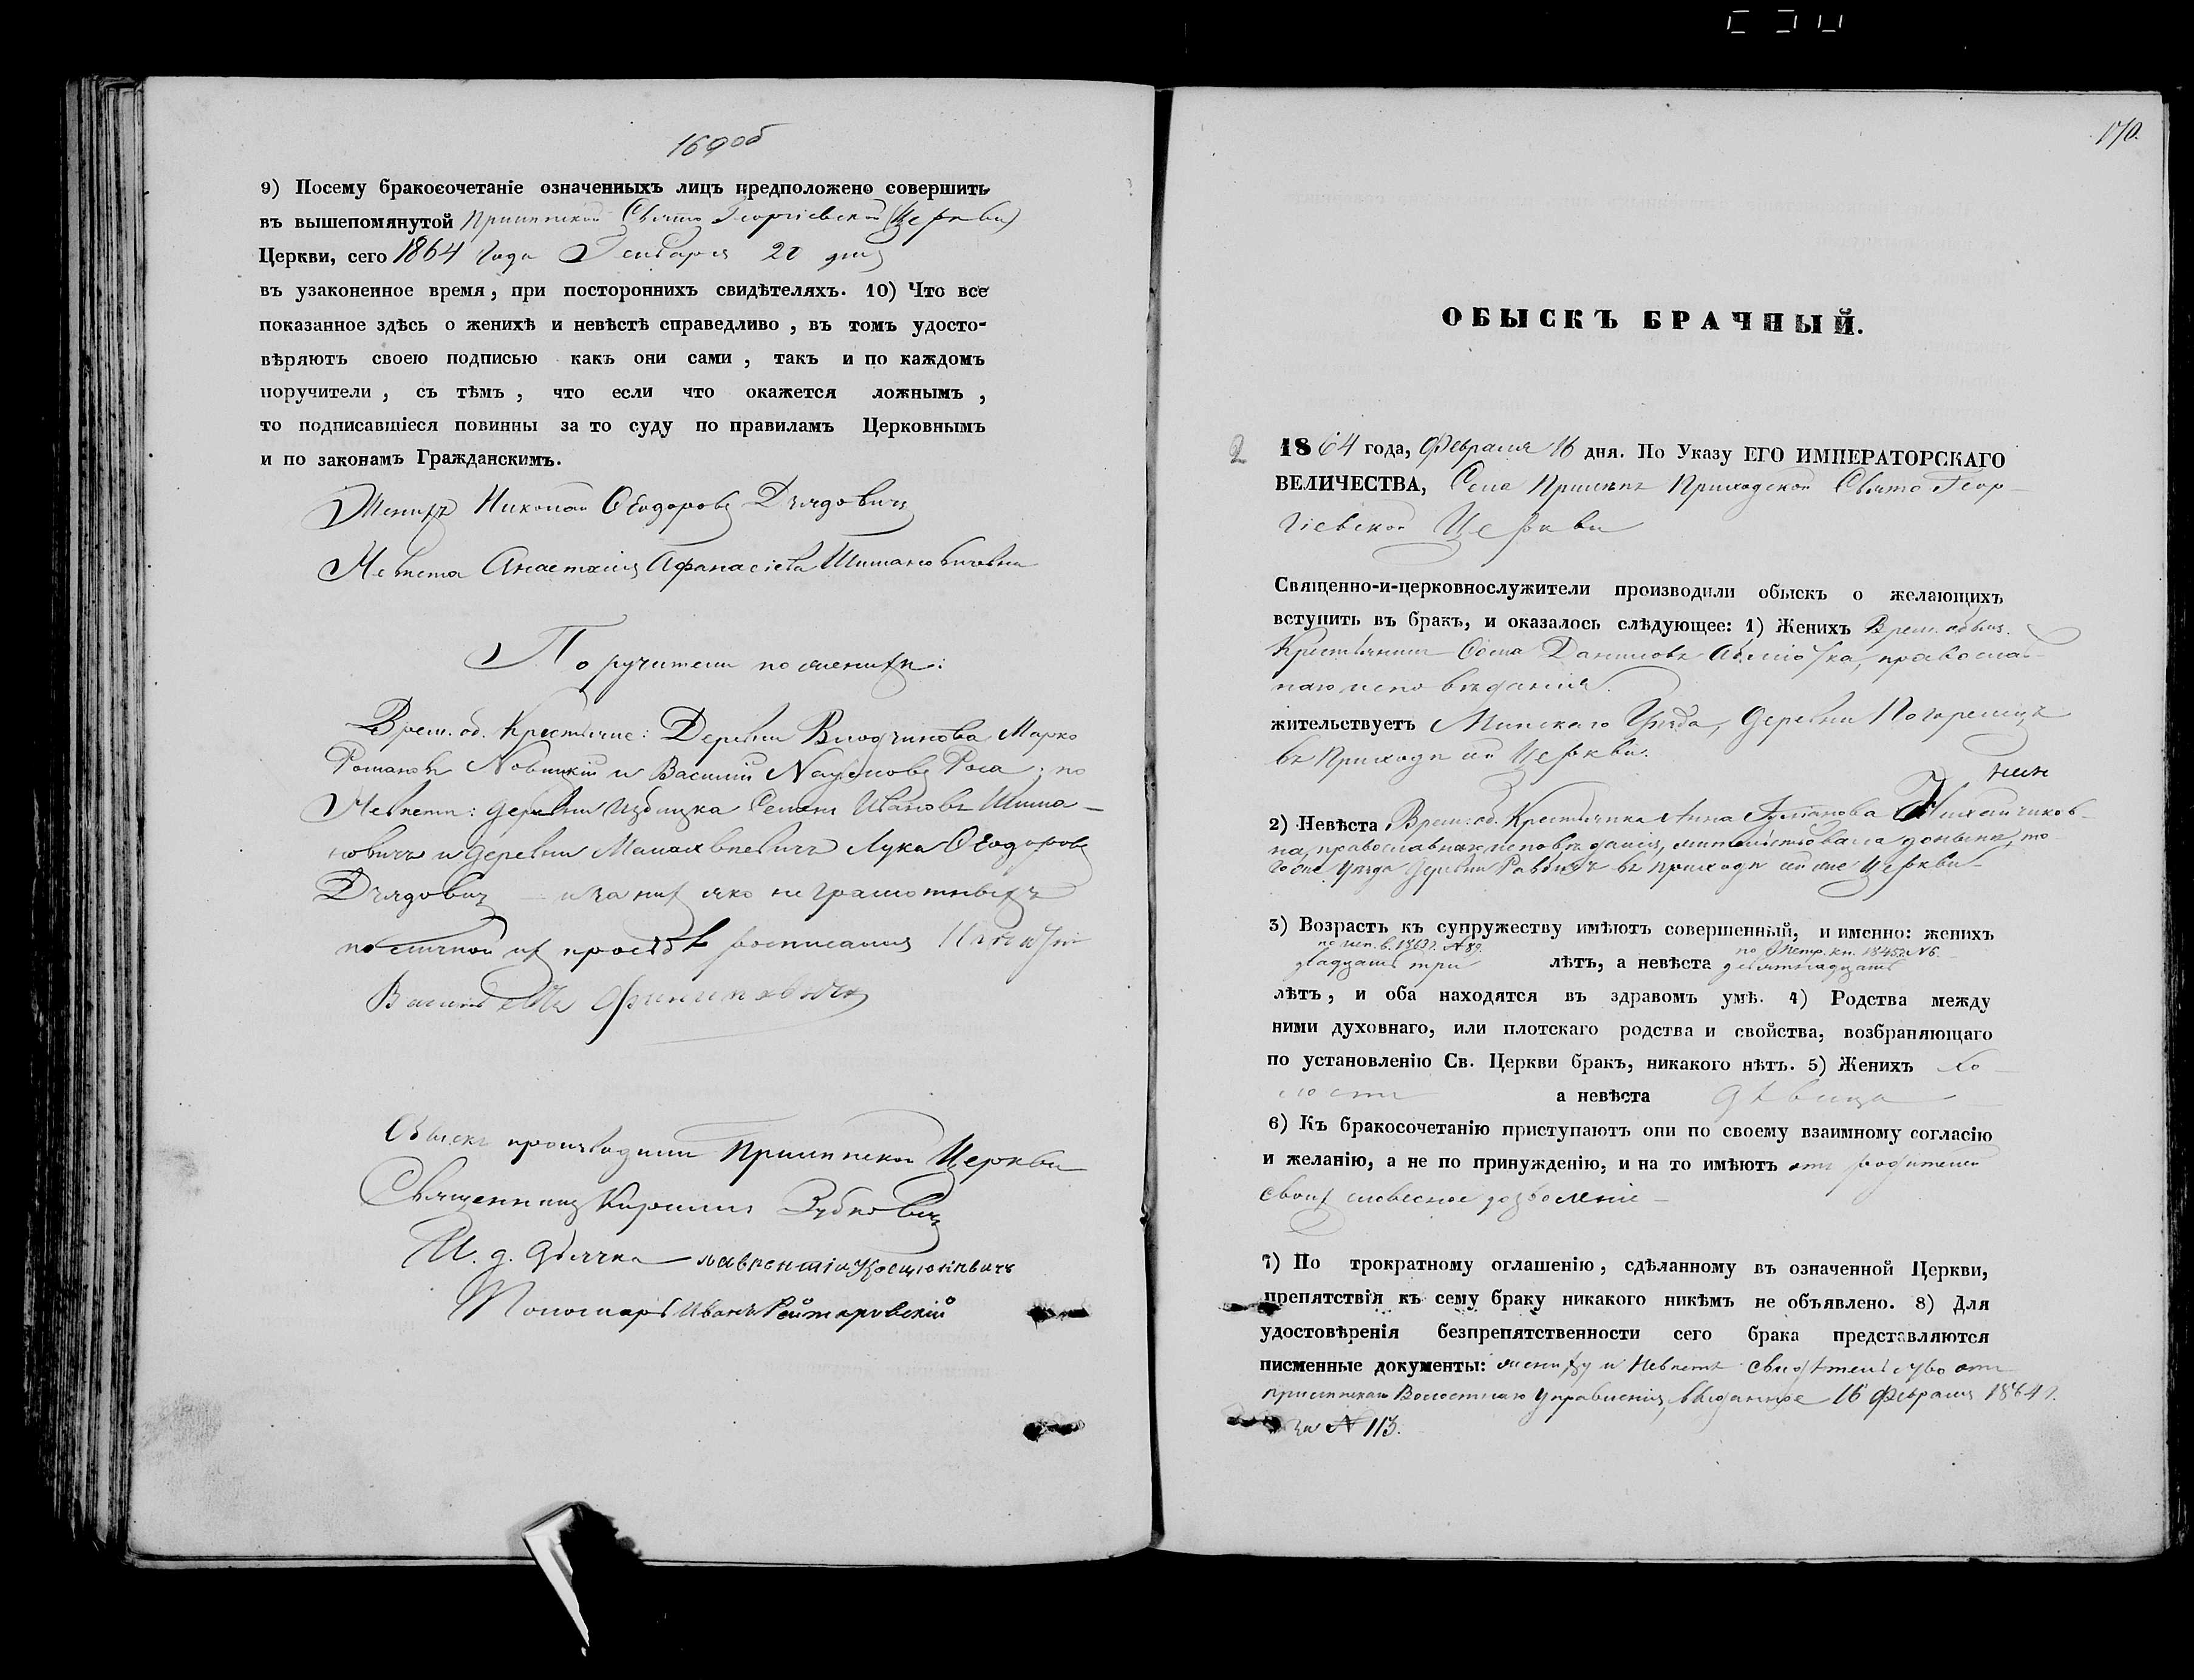 169 об
9) Посему бракосочетаніе означенныхъ лицъ предположено совершить
въ вышепомянутой Прилѣпской Свято Георгіевской (Церкви)
Церкви, сего 1864 года Генваря 20 дня
въ узаконенное время, при постороннихъ свидѣтеляхъ. 10) Что все
показанное здѣсь о женихѣ и невѣстѣ справедливо, въ томъ удосто-
вѣряютъ своею подписью какъ они сами, такъ и по каждомъ
поручители, съ тѣмъ, что если что окажется ложнымъ,
то подписавшіеся повинны за то суду по правиламъ Церковнымъ
и по законамъ Гражданскимъ.
Женихъ Николай Ѳеодоровъ Дѣдовичъ
Невѣста Анастасія Афанасіева
Поручители по женихѣ:
Врем. об. Крестьяне: Деревни Марко
Романовъ Новицкій и Василій Роса; по
Невѣстѣ: деревни Избицка Семенъ Ивановъ Шима-
новичъ и деревни Лука Ѳеодоровъ
Дѣдовичъ — и за нихъ яко неграмотныхъ
по личной ихъ просьбѣ росписался
Обыскъ производили Прилѣпской Церкви
Священникъ Кириллъ Зубковичъ
И. д. Дьячка Лаврентій
Пономарь Иванъ Рейтаровскій
170.
ОБЫСКЪ БРАЧНЫЙ.
2 1864 года, Февраля 16 дня. По Указу ЕГО ИМПЕРАТОРСКАГО
ВЕЛИЧЕСТВА, Села Прилѣпъ Приходской Свято Геор-
гіевской Церкви
Священно-и-церковнослужители производили обыскъ о желающихъ
вступить въ бракъ, и оказалось слѣдующее: 1) Женихъ Врем. обяз.
Крестьянинъ Ѳома Даниловъ православ-
наго исповѣданія.
жительствуетъ Минскаго Уѣзда, деревни Погорѣлецъ
въ Приходѣ сей Церкви.
2) Невѣста Врем. об. Крестьянка Анна
на, православнаго исповѣданія, жительствовала донынѣ, то-
го же уѣзда деревни въ приходѣ сей же Церкви
3) Возрастъ къ супружеству имѣютъ совершенный, и именно: женихъ
по исп. в. 1863 г. № 89. по Метр. кн. 1845 г. № 6.
двадцать три лѣтъ, а невѣста девятнадцать
лѣтъ, и оба находятся въ здравомъ умѣ. 4) Родства между
ними духовнаго, или плотскаго родства и свойства, возбраняющаго
по установленію Св. Церкви бракъ, никакого нѣтъ. 5) Женихъ хо-
лостъ а невѣста дѣвица
6) Къ бракосочетанію приступаютъ они по своему взаимному согласію
и желанію, а не по принужденію, и на то имѣютъ отъ родителей
своихъ словесное дозволеніе
7) По трократному оглашенію, сдѣланному въ означенной Церкви,
препятствія къ сему браку никакого никѣмъ не объявлено. 8) Для
удостовѣренія безпрепятственности сего брака представляются
писменные документы: жениху и невѣстѣ свидѣтельство отъ
Прилѣпскаго Волостнаго управленія, выданное 16 Февраля 1864 г.
за № 113.